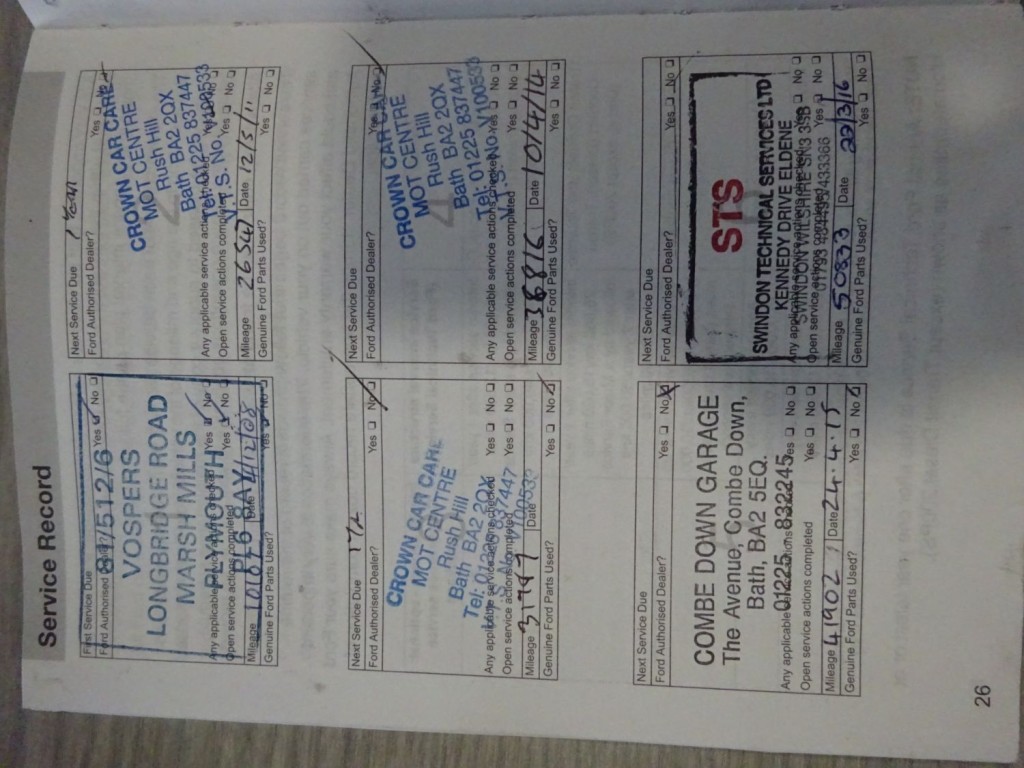 Service Record
First Service Due
Ford Authorised Dealer? Yes No
87/5112/6
VOSPERS
LONGBRIDGE ROAD
MARSH MILLS
PLYMOUTH
PL6 8AY
Any applicable service actions checked Yes No
Open service actions completed Yes No
Mileage Date
Genuine Ford Parts Used? Yes No
Next Service Due 1 YEAR
Ford Authorised Dealer? Yes No
CROWN CAR CARE
MOT CENTRE
Rush Hill
Bath BA2 2QX
Tel: 01225 837447
V.T.S. No. V100533
Any applicable service actions checked Yes No
Open service actions completed Yes No
Mileage 26547 Date 12/5/11
Genuine Ford Parts Used? Yes No
Next Service Due
Ford Authorised Dealer? Yes No
CROWN CAR CARE
MOT CENTRE
Rush Hill
Bath BA2 2QX
Tel: 01225 837447
V100533
Any applicable service actions checked Yes No
Open service actions completed Yes No
Mileage Date
Genuine Ford Parts Used? Yes No
Next Service Due
Ford Authorised Dealer? Yes No
CROWN CAR CARE
MOT CENTRE
Rush Hill
Bath BA2 2QX
Tel: 01225 837447
V.T.S. No. V100533
Any applicable service actions checked Yes No
Open service actions completed Yes No
Mileage 36816 Date 10/4/14
Genuine Ford Parts Used? Yes No
Next Service Due
Ford Authorised Dealer? Yes No
COMBE DOWN GARAGE
The Avenue, Combe Down,
Bath, BA2 5EQ.
01225 832245
Any applicable service actions checked Yes No
Open service actions completed Yes No
Mileage 41902 Date 24.4.15
Genuine Ford Parts Used? Yes No
Next Service Due
Ford Authorised Dealer? Yes No
STS
SWINDON TECHNICAL SERVICES LTD
KENNEDY DRIVE ELDENE
SWINDON WILTSHIRE SN3 3SB
Any applicable service actions checked Yes No
Open service actions completed Yes No
Mileage 50833 Date 22/3/16
Genuine Ford Parts Used? Yes No
26